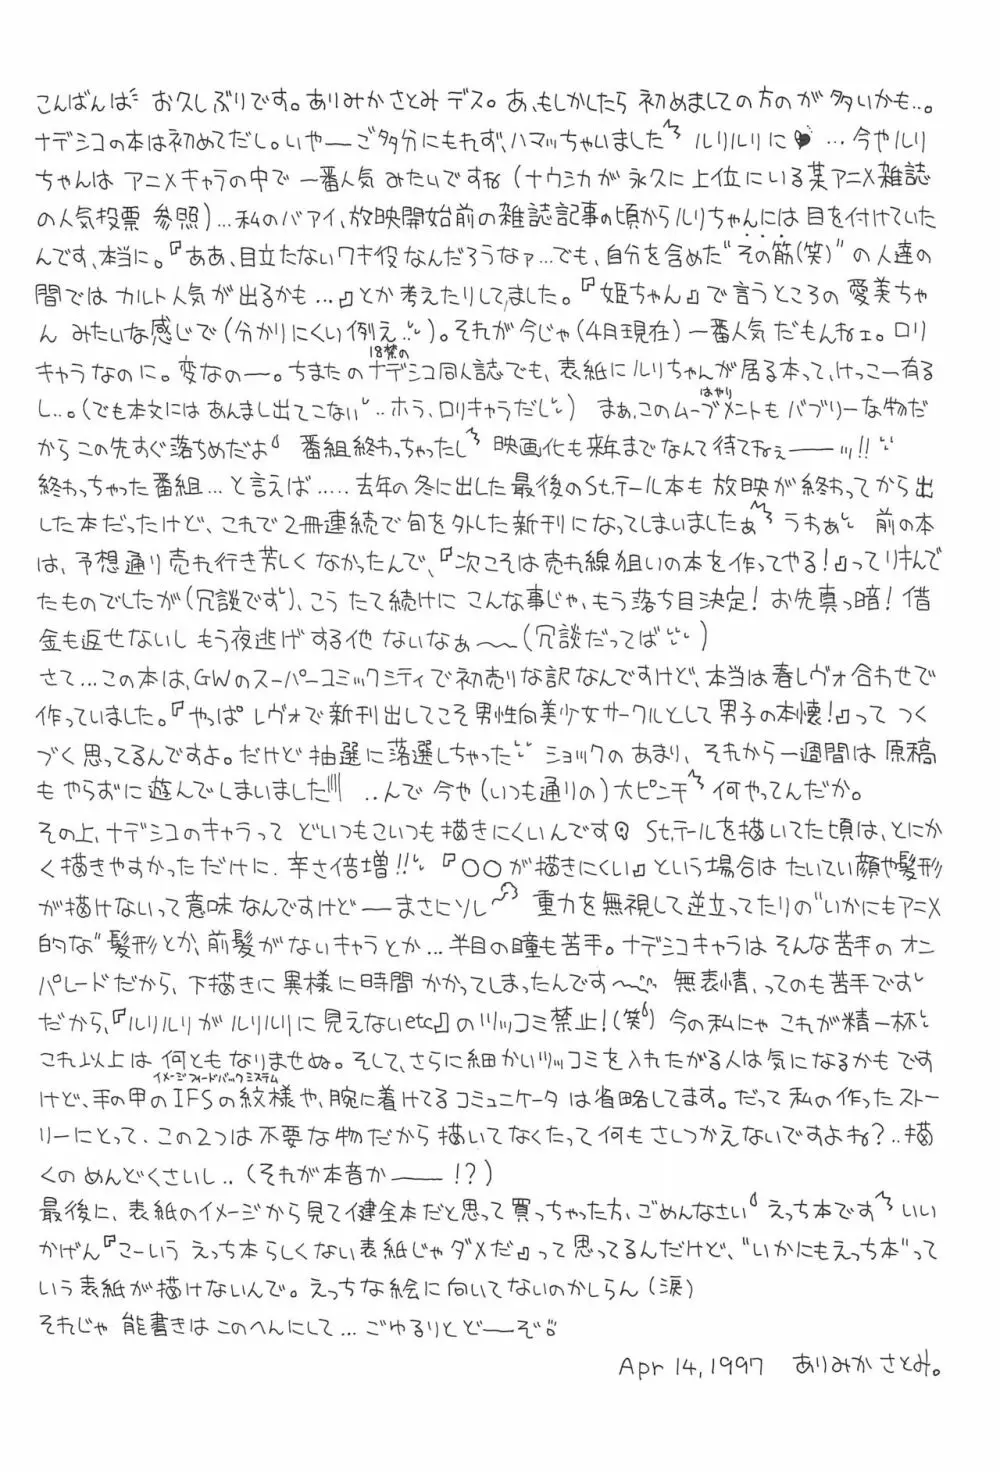 こんばんは お久しぶりです。ありみかさとみデス。あ、もしかしたら 初めましての方のが多いかも..。
ナデシコの本は初めてだし。いやーご多分にもれず、ハマッちゃいました ルリルリに♥…今やルリ
ちゃんは アニメキャラの中で 一番人気 みたいですね（ナウシカが 永久に上位にいる某アニメ雑誌
の人気投票 参照）…私のバアイ、放映開始前の雑誌記事の頃からルリちゃんには目を付けていた
んです、本当に。『ああ、目立たないワキ役なんだろうなァ…でも、自分を含めた“その筋(笑)”の人達の
間では カルト人気が出るかも…』とか考えたりしてました。『姫ちゃん』で言うところの愛美ちゃ
ん みたいな感じで(分かりにくい例え..)。それが今じゃ(4月現在) 一番人気だもんねェ。ロリ
キャラなのに。変なのー。ちまたの18禁のナデシコ同人誌でも、表紙にルリちゃんが居る本って、けっこー有る
し..。(でも本文にはあんまし出てこない..ホラ、ロリキャラだし) まぁ、このムーブメント(はやり)もバブリーな物だ
からこの先すぐ落ちめだよ 番組終わっちゃったし 映画化も来年までなんて待てねぇーーッ!!
終わっちゃった番組…と言えば…..去年の冬に出した最後のSt.テール本も 放映が終わってから出
した本だったけど、これで2冊連続で旬を外した新刊になってしまいましたぁ うわぁ 前の本
は、予想通り売れ行き苦しくなかったんで、『次こそは売れ線狙いの本を作ってやる！』ってリキんで
たものでしたが(冗談です)、こうたて続けにこんな事じゃ、もう落ち目決定！お先真っ暗！借
金も返せないし もう夜逃げする他 ないなぁ～(冗談だってば)
さて…この本は、GWのスーパーコミックシティで初売りな訳なんですけど、本当は春レヴォ合わせで
作っていました。『やっぱ レヴォで新刊出してこそ男性向美少女サークルとして男子の本懐！』って つく
づく思ってるんですよ。だけど抽選に落選しちゃった ショックのあまり、それから一週間は 原稿
も やらずに遊んでしまいました ..んで 今や(いつも通りの)大ピンチ 何やってんだか。
その上、ナデシコのキャラって どいつもこいつも描きにくいんです St.テールを描いてた頃は、とにか
く描きやすかっただけに、辛さ倍増!!『〇〇が描きにくい』という場合は たいてい顔や髪形
が描けないって意味なんですけどーまさにソレ 重力を無視して逆立ってたりの“いかにもアニメ
的な”髪形とか、前髪がないキャラとか…半目の瞳も苦手。ナデシコキャラは そんな苦手の オン
パレードだから、下描きに異様に時間かかってしまったんです～ 無表情、ってのも苦手です
だから、『ルリルリが ルリルリに見えないetc』のツッコミ禁止！(笑) 今の私にゃ これが精一杯
これ以上は 何ともなりませぬ。そして、さらに細かいツッコミを入れたがる人は気になるかも です
けど、手の甲のIFS(イメージフィードバックシステム)の紋様や、腕に着けてるコミュニケータ は省略してます。だって私の作ったストー
リーにとって、この2つは不要な物だから描いてなくたって何もさしつかえないですよね？..描
くのめんどくさいし..（それが本音かーー!?）
最後に、表紙のイメージから見て健全本だと思って買っちゃった方、ごめんなさい えっち本です いい
かげん『こーいう えっち本らしくない表紙じゃダメだ』って思ってるんだけど、“いかにもえっち本”って
いう表紙が描けないんで。えっちな絵に向いてないのかしらん(涙)
それじゃ 能書きは このへんにして…ごゆるりとどーぞ
Apr 14,1997 ありみかさとみ。